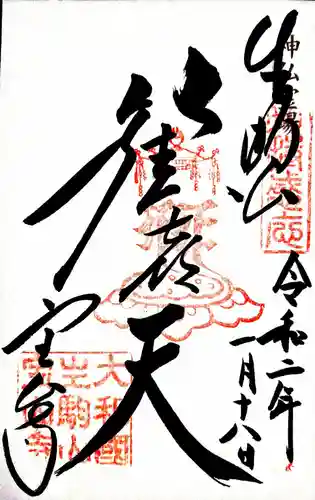 神仏霊場
生駒山
令和二年
一月十八日
歓喜天
宝山寺
大和國
生駒山
寳山寺